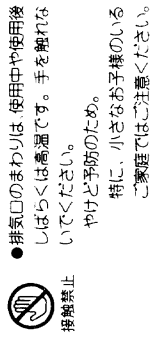 ●排気口のまわりは、使用中や使用後
しばらくは高温です。手を触れな
いでください。
やけど予防のため。
特に、小さなお子様のいる
ご家庭ではご注意ください。
接触禁止